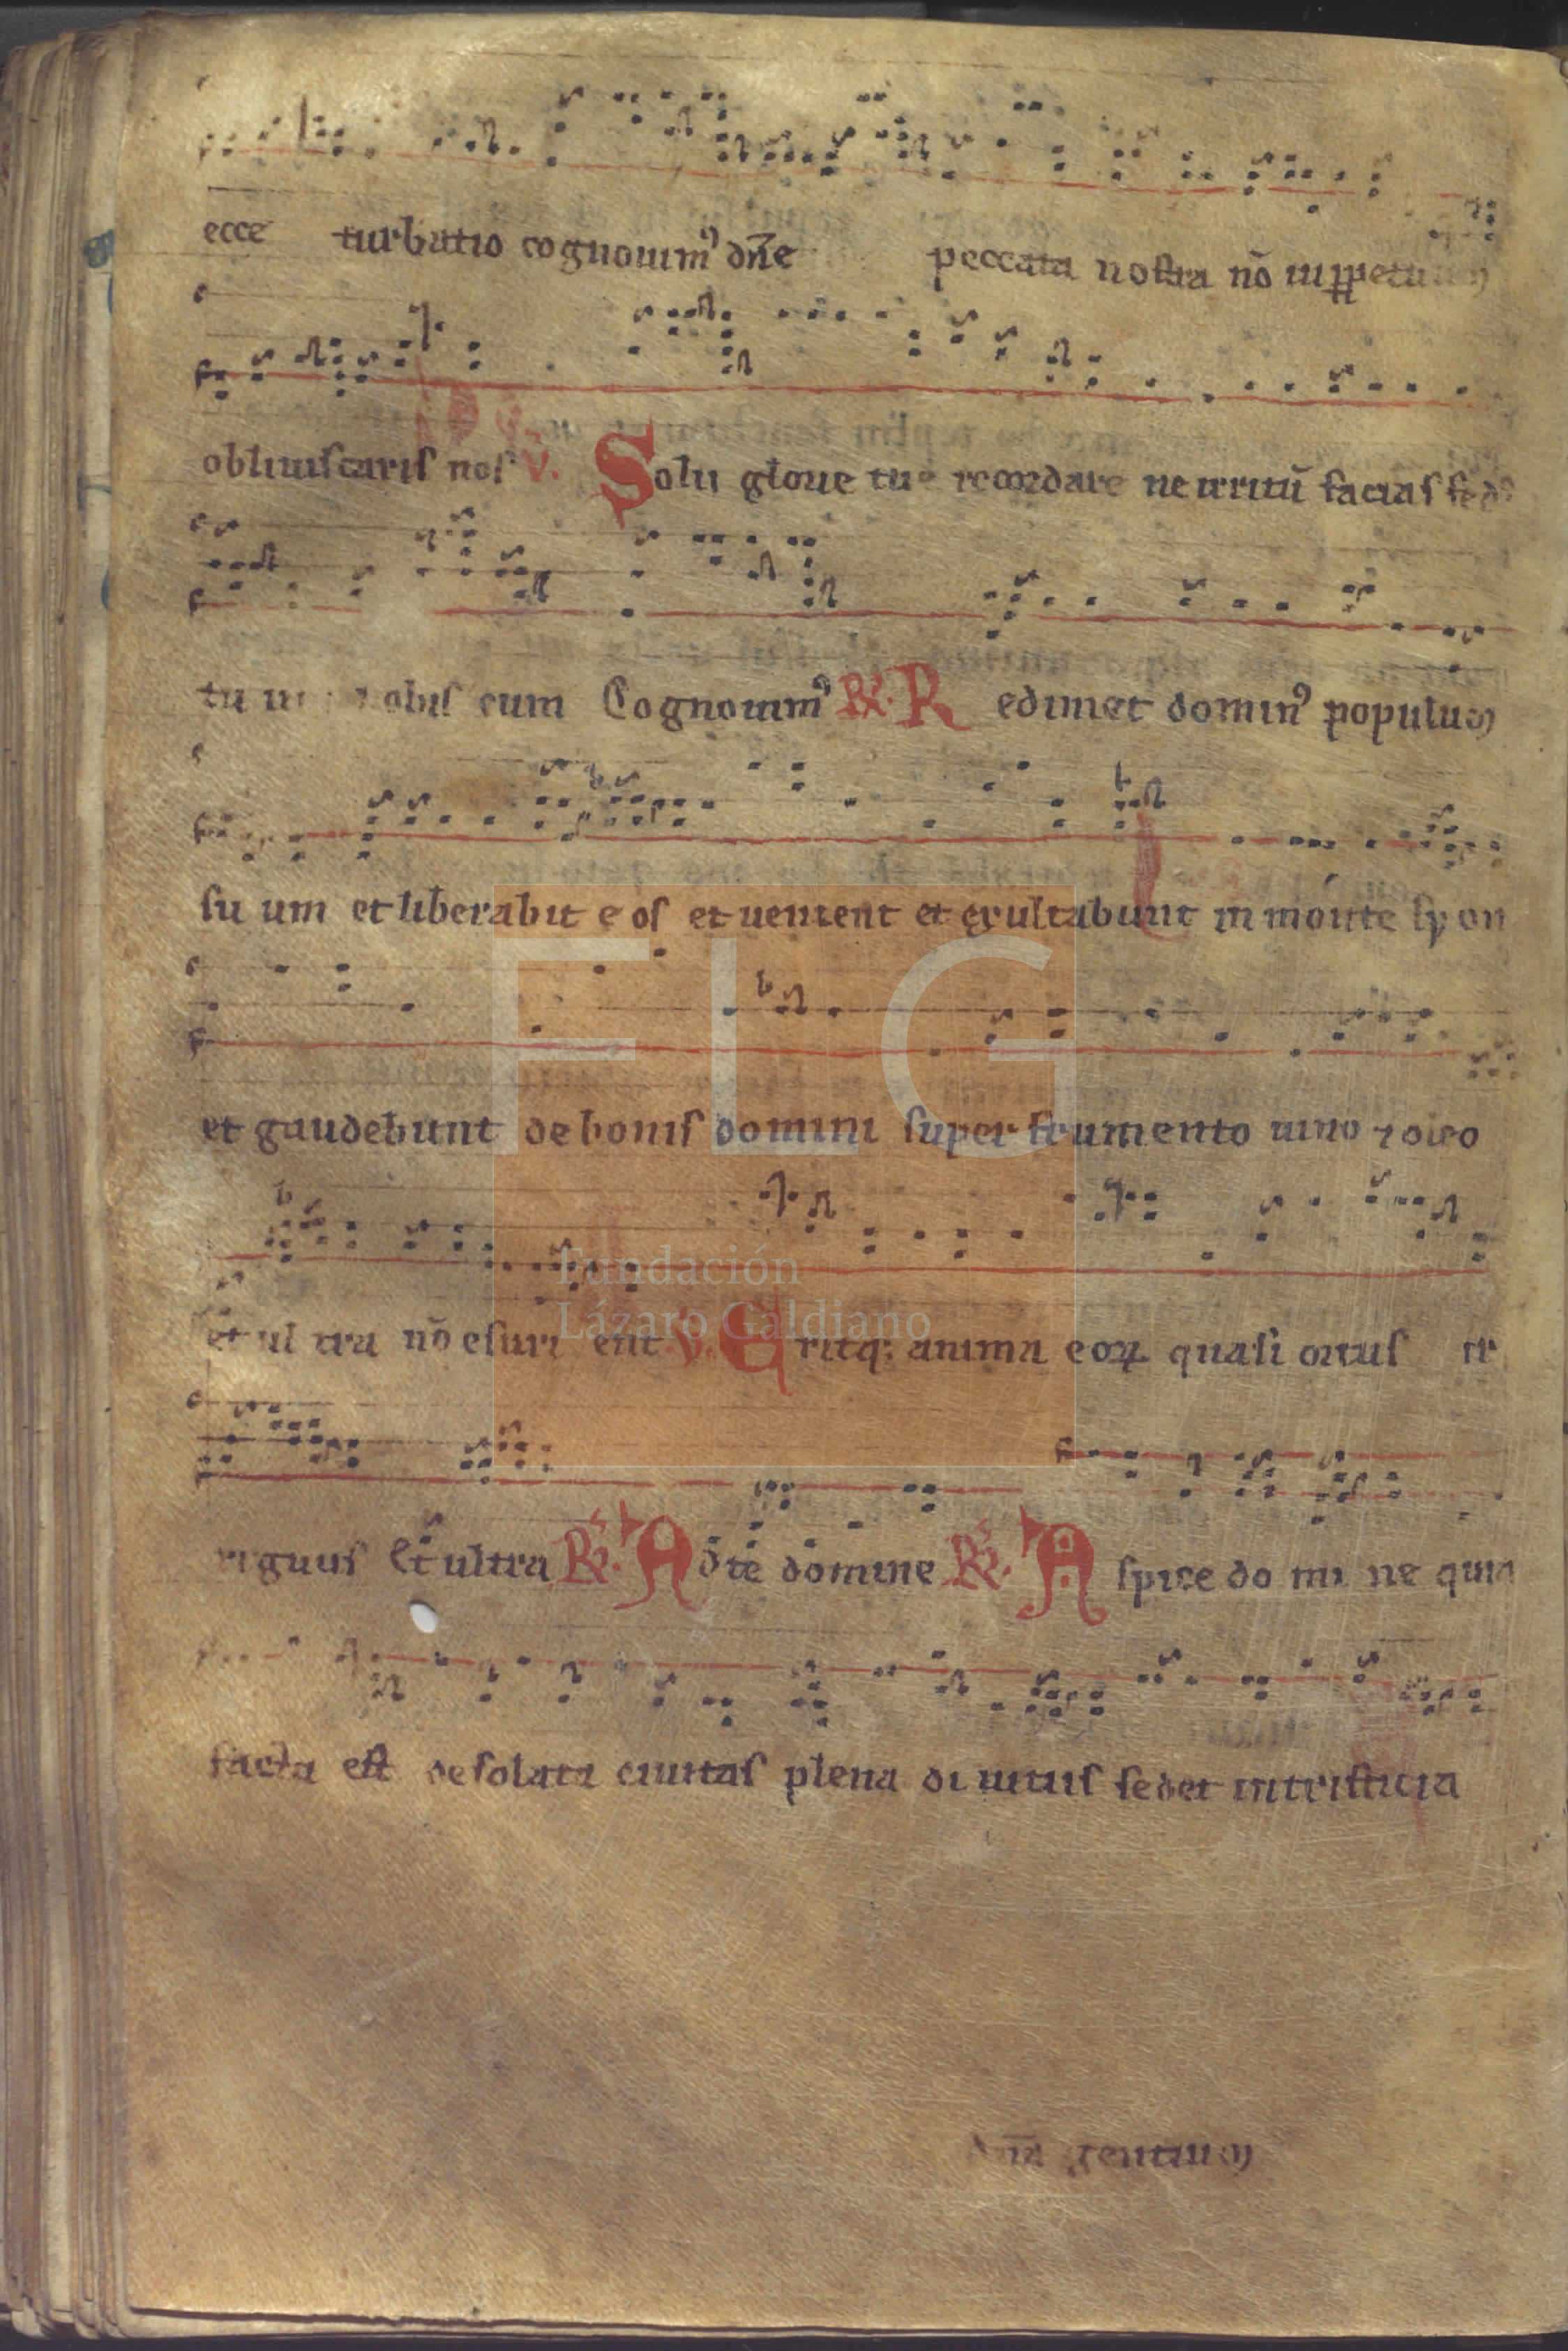 ecce turbatio cognouimꝰ dn̄e peccata nostra nō inꝑpetuum
obliuiscaris nos V. Solii glorie tue recordare ne irritū facias fedꝰ
tuum nobis cum Cognouimꝰ R̷. Redimet dominꝰ populum
su um et liberabit e os et uenient et exultabunt in monte syon
et gaudebunt de bonis domini super frumento uino ⁊ oleo
et ul tra nō esuri ent V. Eritq; anima eoꝝ quasi ortus ir
riguus Et ultra R̷. Ad te domine R̷. Aspice do mi ne quia
facta est desolata ciuitas plena di uitiis sedet in tristicia
dn̄a gentium
FLG
Fundación
Lázaro Galdiano